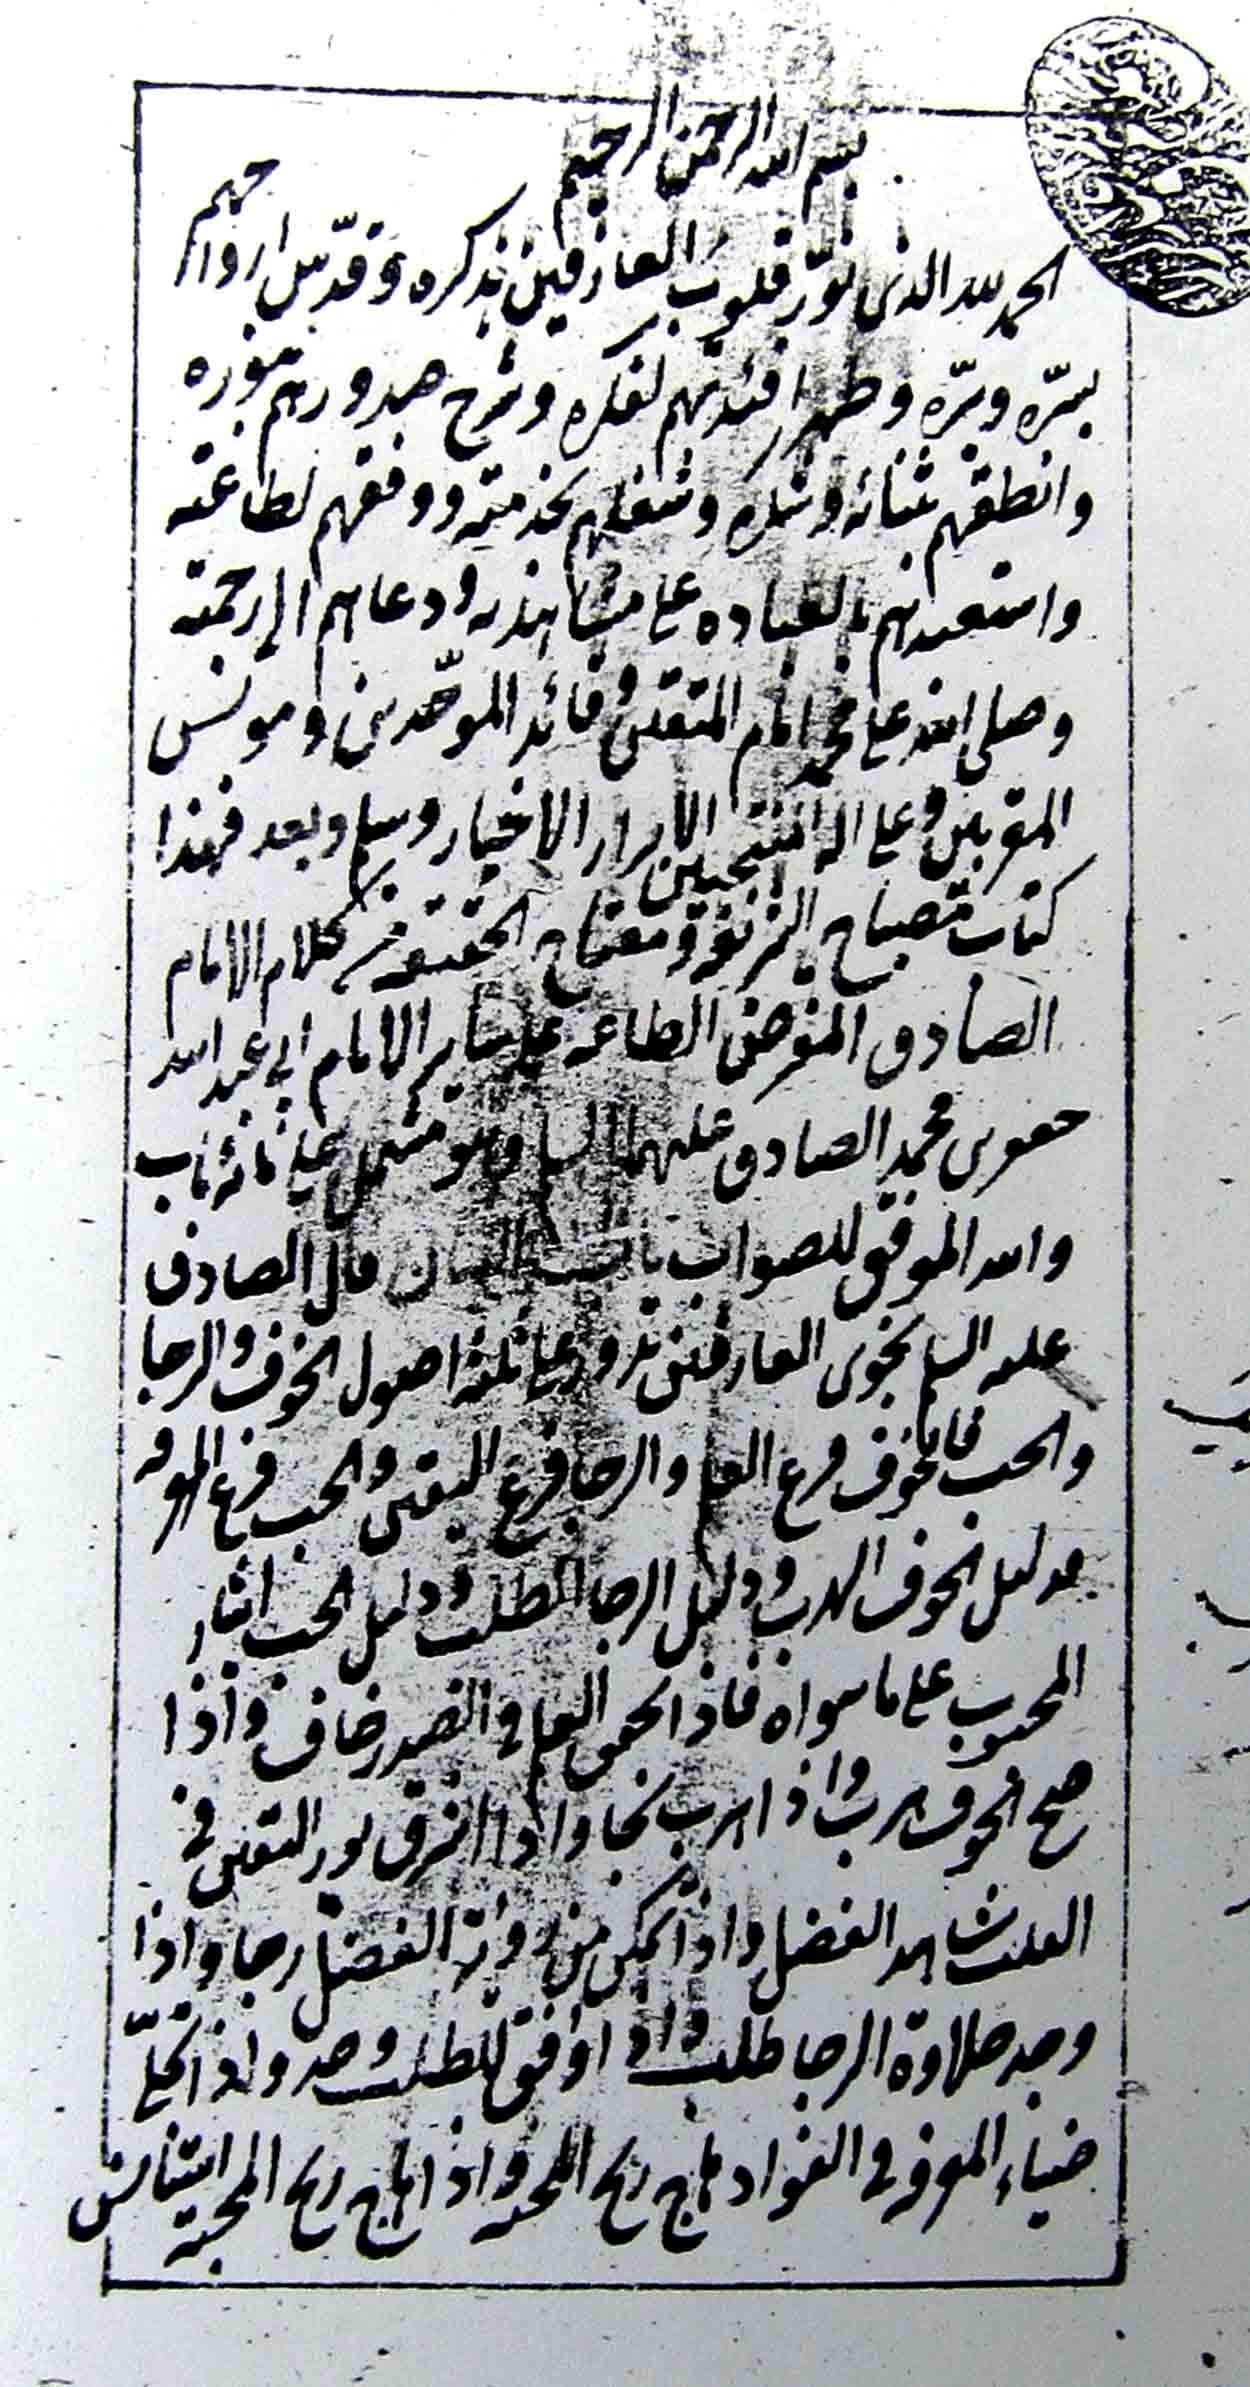 بسم الله الرحمن الرحيم
الحمد لله الذى نوّر قلوب العارفين بذكره وقدّس ارواحهم
بسرّه وبرّه وطهر افئدتهم لفكره وشرح صدورهم بنوره
وانطقهم بثنائه وشكره وشغلهم بخدمته ووفقهم لطاعته
واستعبدهم بالعباده على مشاهدته ودعاهم الى رحمته
وصلى الله على محمد امام المتقين وقائد الموحّدين ومونس
المقربين وعلى اله المنتجبين الابرار الاخيار وسلم وبعد فهذا
كتاب مصباح الشريعة ومفتاح الحقيقه من كلام الامام
الصادق المفترض الطاعه على ساير الانام ابى عبد الله
جعفر بن محمد الصادق عليهما السلم وهو مشتمل على مائة باب
والله الموفق للصواب باب البيان قال الصادق
عليه السلم نجوى العارفين تدور على ثلثه اصول الخوف والرجا
والحب فالخوف فرع العلم والرجا فرع اليقين والحب فرع المعرفه
فدليل الخوف الهرب ودليل الرجا الطلب ودليل الحب ايثار
المحبوب على ما سواه فاذا تحقق العلم فى الصدر خاف واذا
صح الخوف هرب واذا هرب نجا واذا اشرق نور اليقين فى
القلب شاهد الفضل واذا تمكن من روية الفضل رجا واذا
وجد حلاوة الرجا طلب واذا وفق للطلب وجد واذا تجلّى
ضياء المعرفه فى الفواد هاج ريح المحبه واذا هاج ريح المحبة استانس